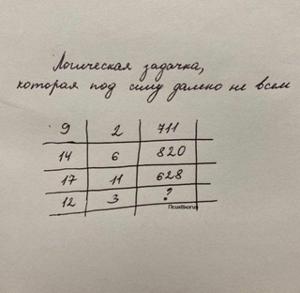 Логическая задачка,
которая под силу далеко не всем
9 2 711
14 6 820
17 11 628
12 3 ?